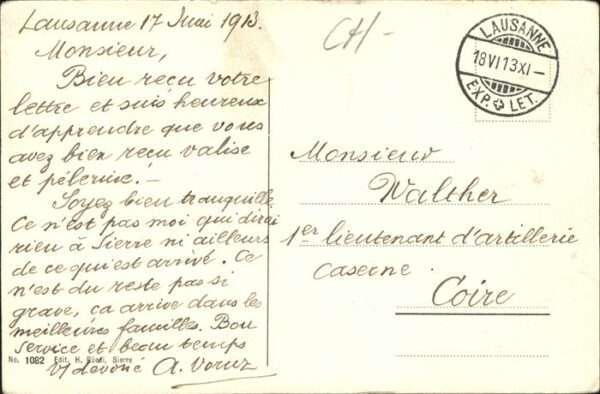 Lausanne 17 Juai 1913.
Monsieur,
Bien reçu votre
lettre et suis heureux
d'apprendre que vous
avez bien reçu valise
et pélerine. —
Soyez bien tranquille
Ce n'est pas moi qui dirai
rien à Sierre ni ailleurs
de ce qui est arrivé. Ce
n'est du reste pas si
grave, ça arrive dans les
meilleures familles. Bon
service et beau temps
dévoué A. Voruz
No. 1082 Edit. H. Sierre
CH-
LAUSANNE
18 VI 13 XI —
EXP. LET.
Monsieur
Walther
1er lieutenant d'artillerie
Caserne
Coire